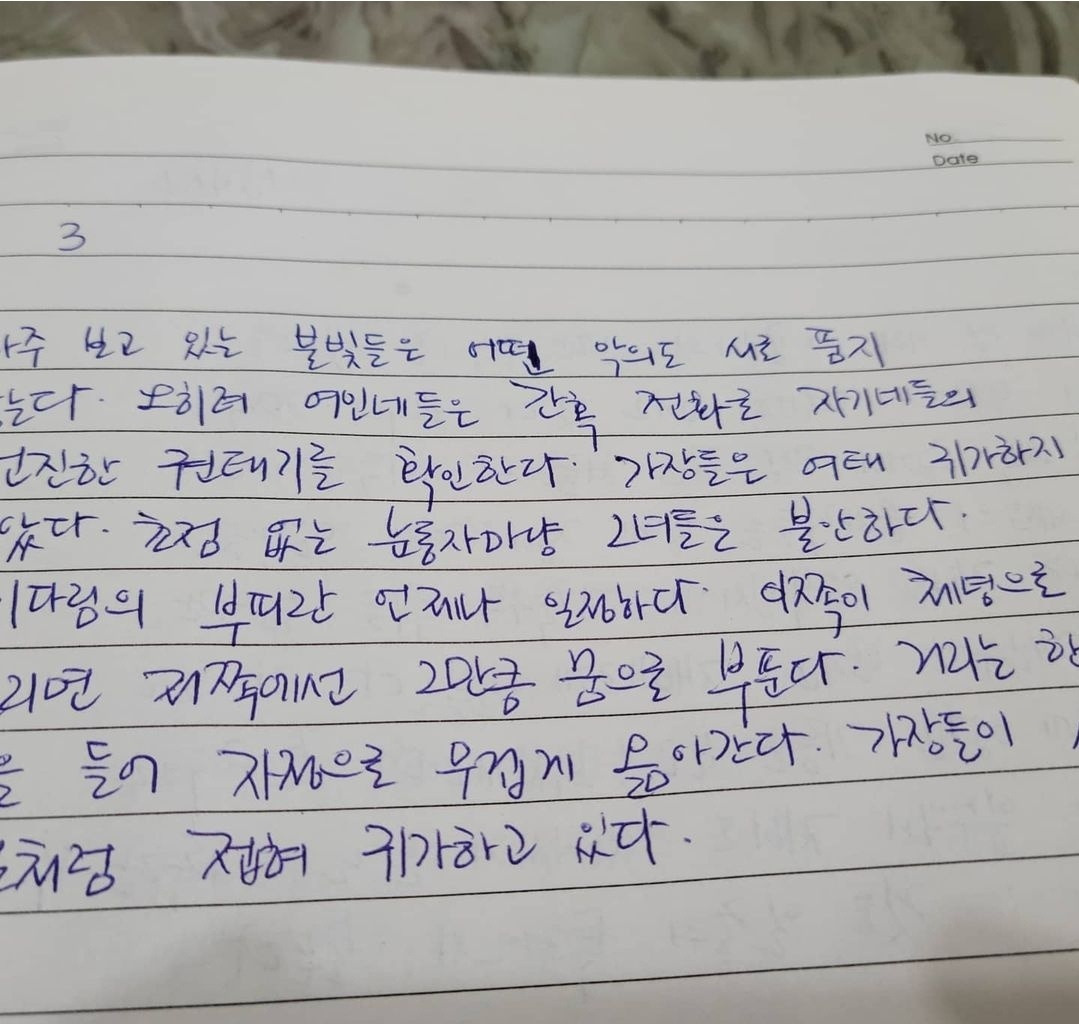 No
Date
3
아주 보고 있는 불빛들은 어떤 악의도 서로 품지
는다. 오히려 여인네들은 간혹 전화로 자기네들의
진한 권태기를 확인한다. 가장들은 여태 귀가하지
았다. 초점 없는 눈동자마냥 그녀들은 불안하다.
다림의 부피란 언제나 일정하다. 이쪽이 체념으로
리면 저쪽에선 그만큼 꿈으로 부푼다. 거리는 한
을 들어 자정으로 무겁게 옮아간다. 가장들이
처럼 접혀 귀가하고 있다.